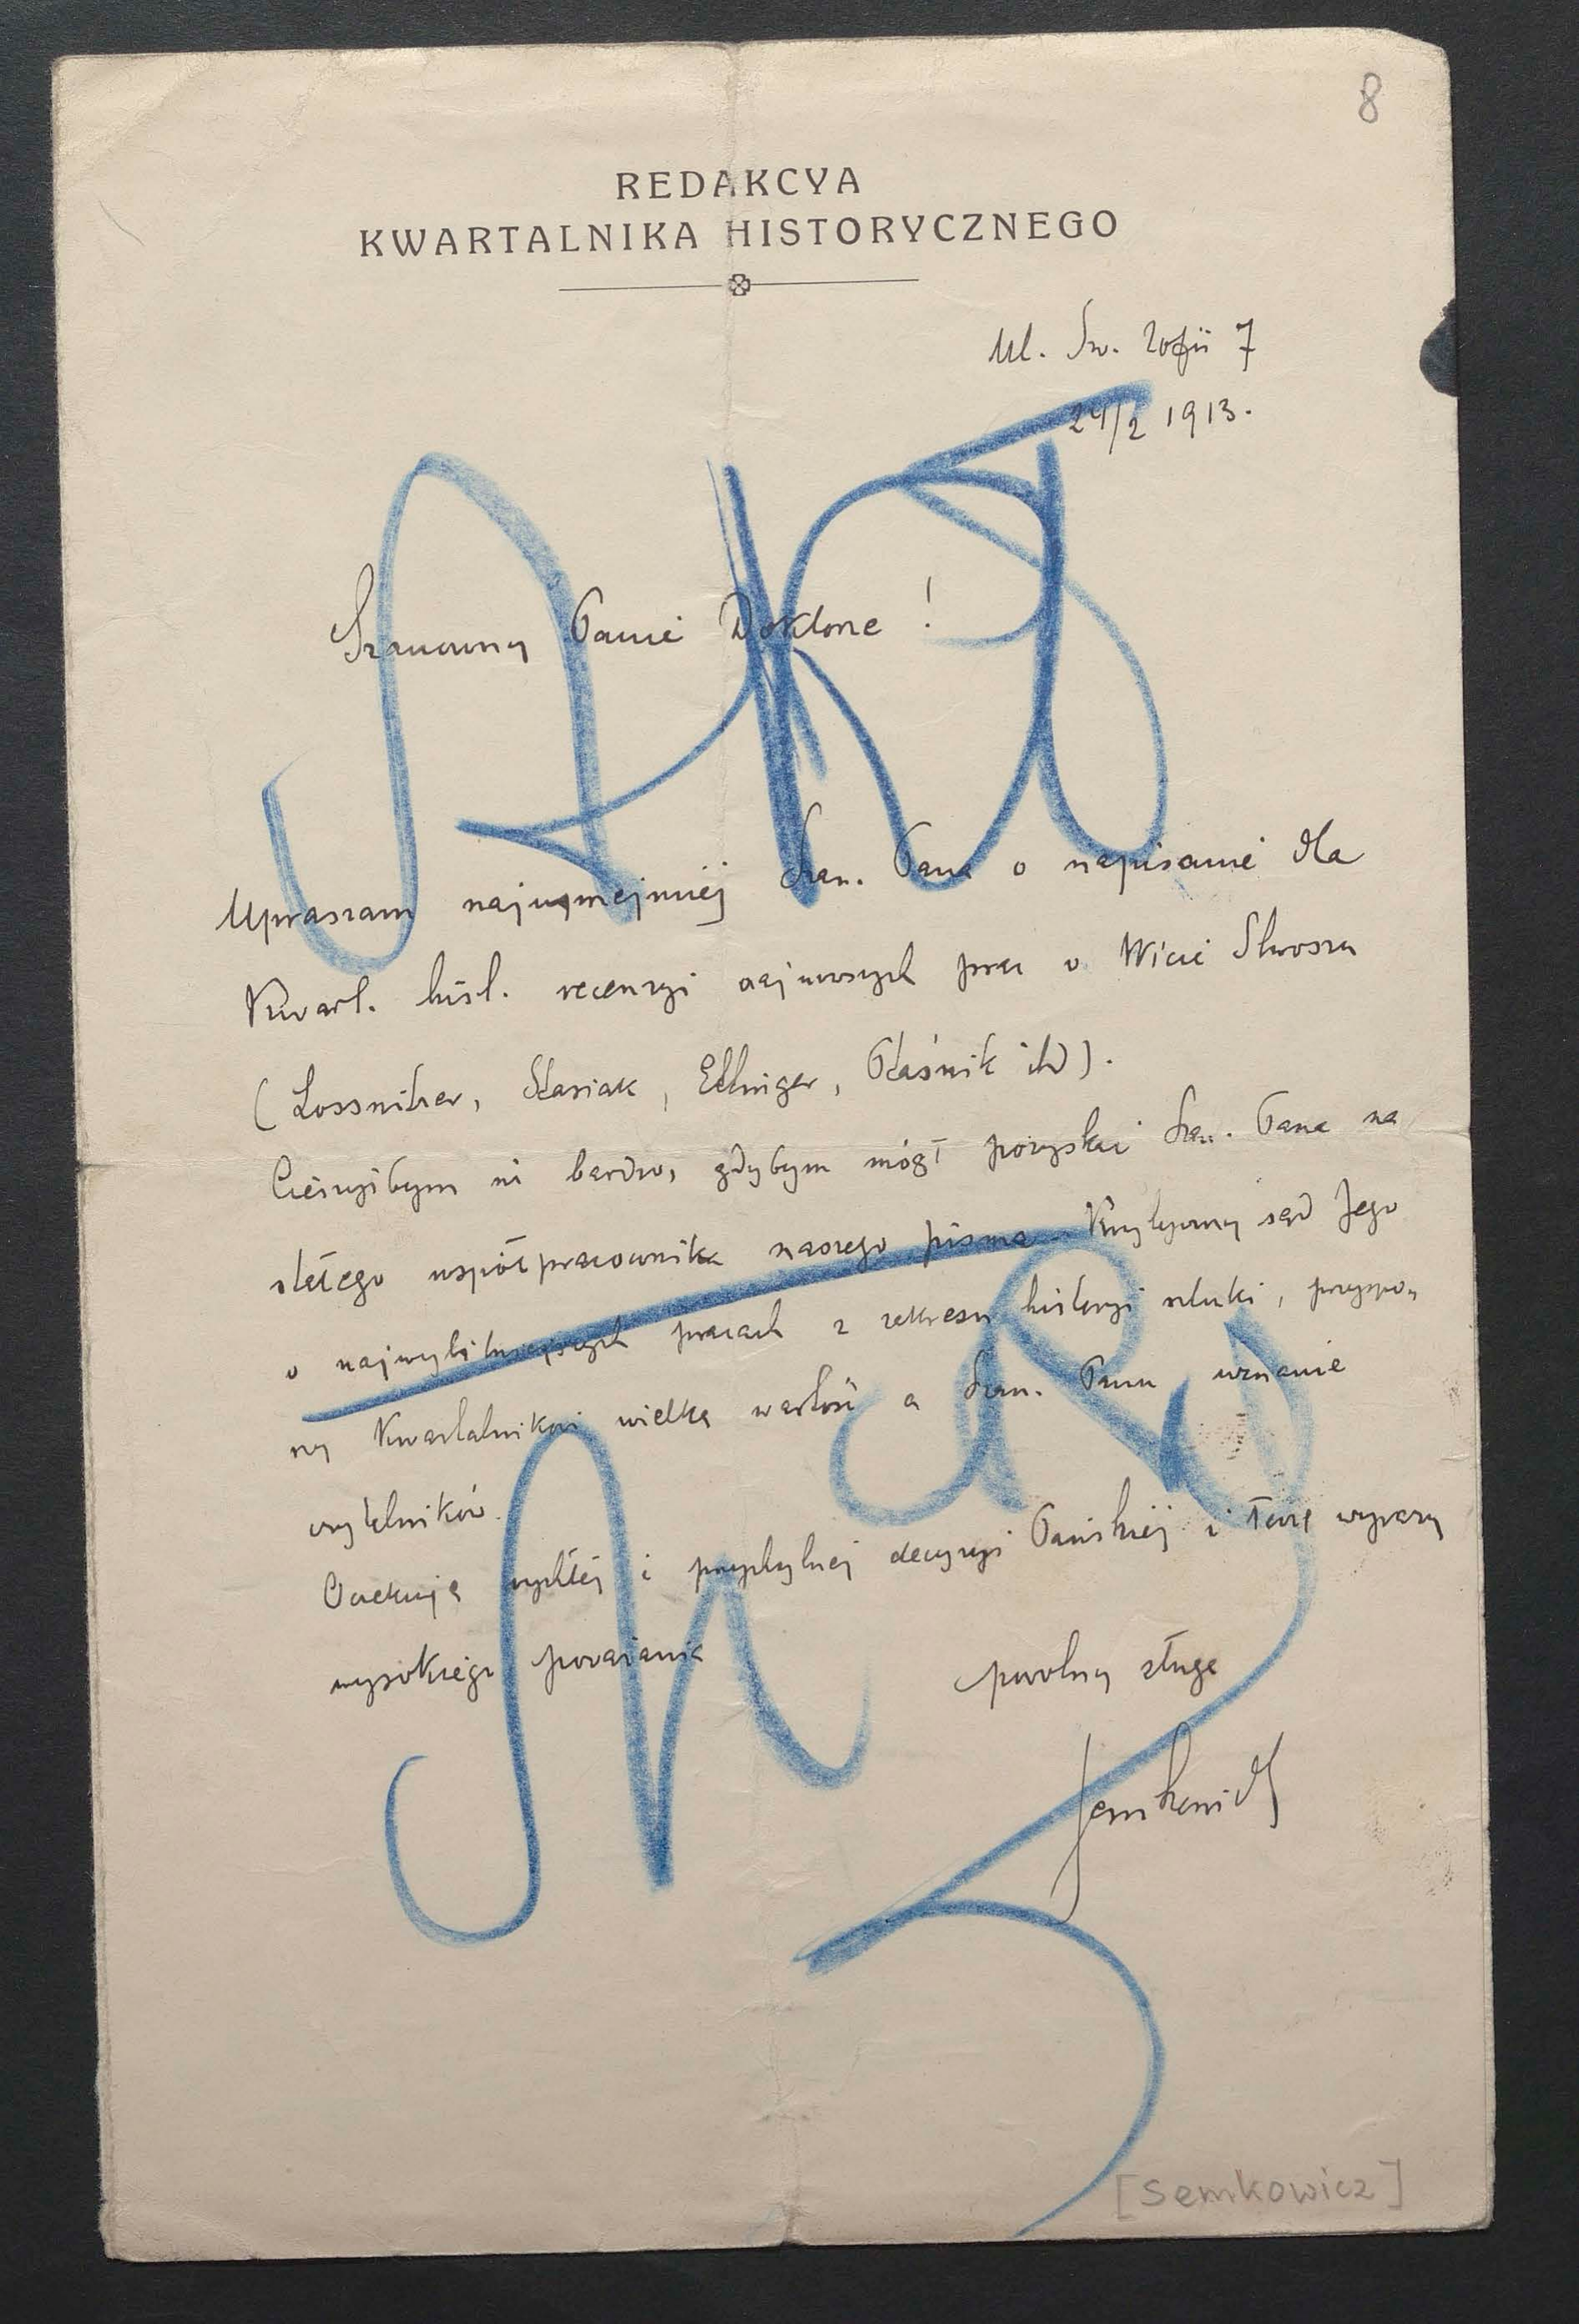 8
REDAKCYA
KWARTALNIKA HISTORYCZNEGO
Ul. Św. Zofii 7
24/2 1913.
Szanowny Panie Doktorze !
Upraszam najuprzejmiej Szan. Pana o napisanie dla
Kwart. hist. recenzyi najnowszych prac o Wicie Stwoszu
(Lossnitzer, Stasiak, Ettinger, Ptaśnik itd).
Cieszyłbym się bardzo, gdybym mógł pozyskać Szan. Pana na
stałego współpracownika naszego pisma. Krytyczny sąd Jego
o najwybitniejszych pracach z zakresu historyi sztuki, przyspo„
rzy Kwartalnikowi wielką wartość a Szan. Panu uznanie
czytelników.
Oczekuję rychłej i przychylnej decyzyi Pańskiej i łączę wyrazy
wysokiego poważania
powolny sługa
Semkowicz
[Semkowicz]